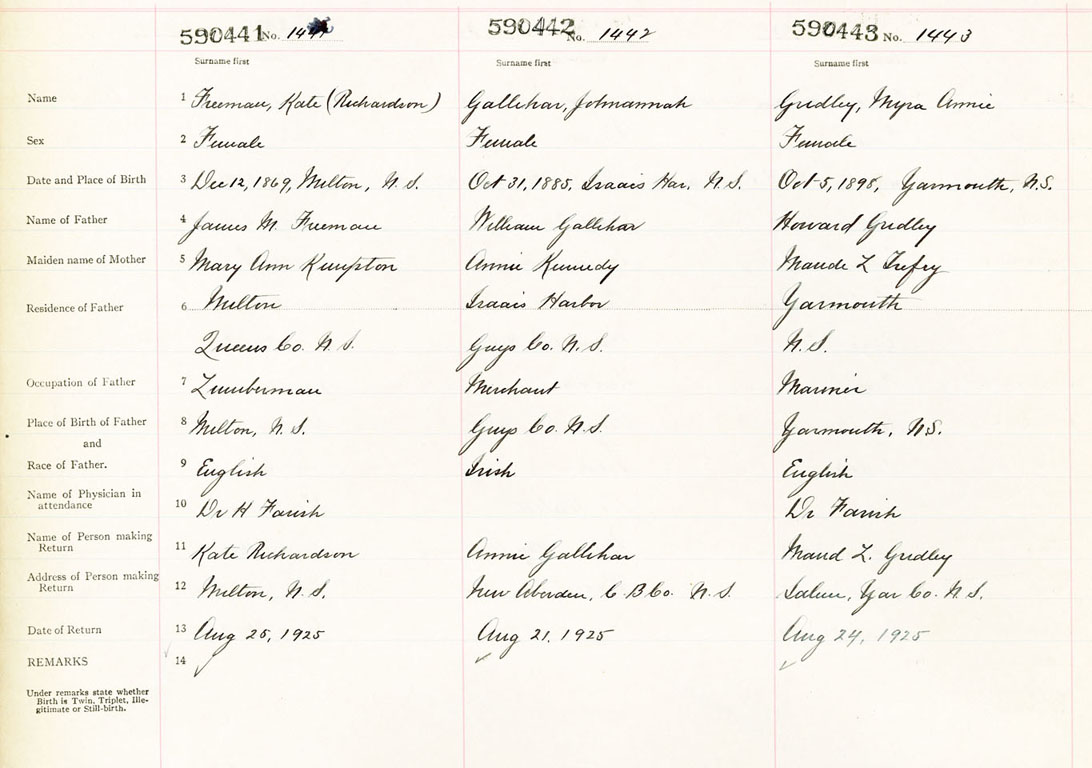 590441 No. 1441 590442 No. 1442 590443 No. 1443
Surname first Surname first Surname first
Name 1 Freeman, Kate (Richardson) Gallihar, Johnannah Gridley, Myra Annie
Sex 2 Female Female Female
Date and Place of Birth 3 Dec 12, 1869, Milton, N.S. Oct 31, 1885, Isaacs Har. N.S. Oct 5, 1898, Yarmouth, N.S.
Name of Father 4 James M. Freeman William Gallihar Howard Gridley
Maiden name of Mother 5 Mary Ann Kempton Annie Kennedy Maude L Trefry
Residence of Father 6 Milton Isaacs Harbor Yarmouth
Queens Co. N.S. Guys Co. N.S. N.S.
Occupation of Father 7 Lumberman Merchant Mariner
Place of Birth of Father 8 Milton, N.S. Guys Co. N.S. Yarmouth, N.S.
and
Race of Father. 9 English Irish English
Name of Physician in attendance 10 Dr H Farish Dr Farish
Name of Person making Return 11 Kate Richardson Annie Gallihar Maud L. Gridley
Address of Person making Return 12 Milton, N.S. New Aberdeen, C.B. Co. N.S. Salem, Yar Co. N.S.
Date of Return 13 Aug 25, 1925 Aug 21, 1925 Aug 24, 1925
REMARKS 14
Under remarks state whether
Birth is Twin, Triplet, Ille-
gitimate or Still-birth.